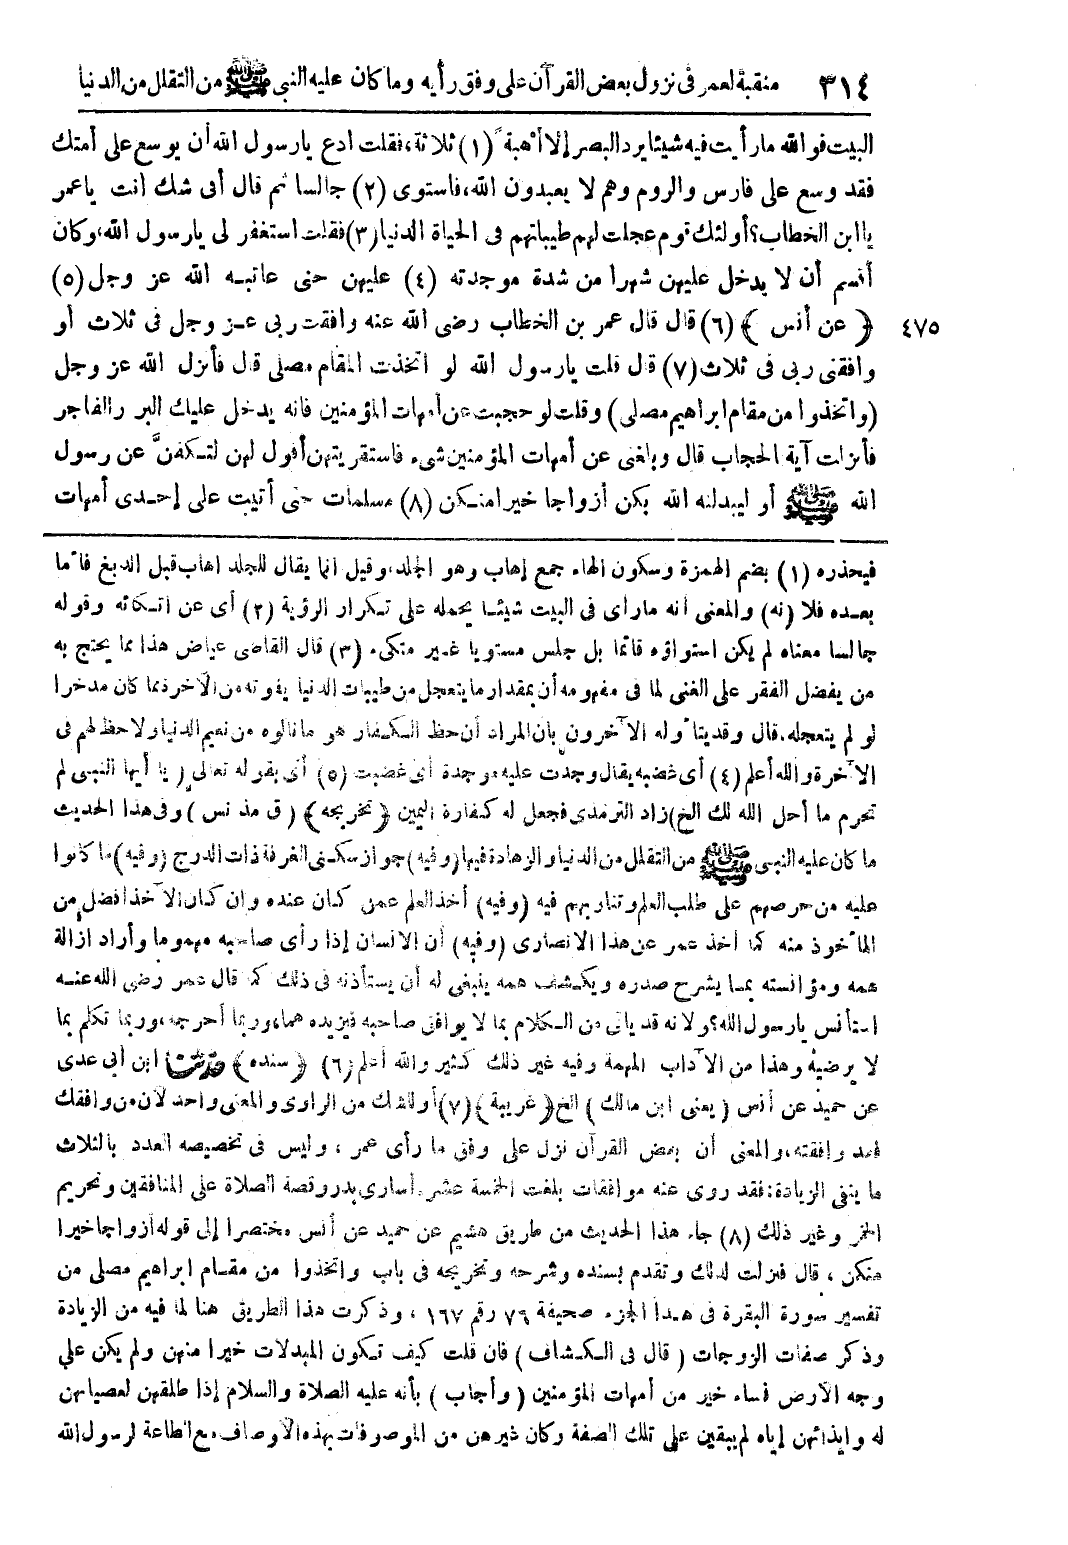 ٣١٤ منقبة لعمر فى نزول بعض القرآن على وفق رأيه وما كان عليه النبى ﷺ من التقلل من الدنيا
البيت فوالله ما رأيت فيه شيئا يرد البصر إلا أهبة ً (١) ثلاثة، فقلت ادع يارسول الله أن يوسع على أمتك
فقد وسع على فارس والروم وهم لا يعبدون الله، فاستوى (٢) جالسا ثم قال أفى شك انت ياعمر
يا ابن الخطاب؟ أولئك قوم عجلت لهم طيباتهم فى الحياة الدنيا (٣) فقلت استغفر لى يارسول الله، وكان
أقسم أن لا يدخل عليهن شهرا من شدة موجدته (٤) عليهن حتى عاتبه الله عز وجل (٥)
٤٧٥ ﴿ عن أنس ﴾ (٦) قال قال عمر بن الخطاب رضى الله عنه وافقت ربى عز وجل فى ثلاث أو
وافقنى ربى فى ثلاث (٧) قال قلت يارسول الله لو اتخذت المقام مصلى قال فأنزل الله عز وجل
(واتخذوا من مقام ابراهيم مصلى) وقلت لو حجبت عن أمهات المؤمنين فانه يدخل عليك البر والفاجر
فأنزلت آية الحجاب قال وبلغنى عن أمهات المؤمنين شىء فاستقريتهن أقول لهن لتكفنَّ عن رسول
الله ﷺ أو ليبدلنه الله بكن أزواجا خيرا منكن (٨) مسلمات حتى أتيت على إحدى أمهات
فيحذره (١) بضم الهمزة وسكون الهاء جمع إهاب وهو الجلد، وقيل انما يقال للجلد اهاب قبل الدبغ فأما
بعده فلا (نه) والمعنى أنه ما رأى فى البيت شيئا يحمله على تكرار الرؤية (٢) أى عن اتكائه وقوله
جالسا معناه لم يكن استواؤه قائما بل جلس مستويا غير متكىء (٣) قال القاضى عياض هذا مما يحتج به
من يفضل الفقر على الغنى لما فى مفهومه أن بمقدار ما يتعجل من طيبات الدنيا يفوته من الآخرة مما كان مدخرا
لو لم يتعجله، قال وقد يتأوله الآخرون بأن المراد أن حظ الكفار هو ما نالوه من نعيم الدنيا ولا حظ لهم فى
الآخرة والله أعلم (٤) أى غضبه يقال وجدت عليه موجدة أى غضبت (٥) أى بقوله تعالى ( يا أيها النبى لم
تحرم ما أحل الله لك الخ) زاد الترمذى فجعل له كفارة اليمين ﴿ تخريجه ﴾ ( ق مذ نس ) وفى هذا الحديث
ما كان عليه النبى ﷺ من التقلل من الدنيا والزهادة فيها (وفيه) جواز سكنى الغرفة ذات الدرج (وفيه) ما كانوا
عليه من حرصهم على طلب العلم وتناوبهم فيه (وفيه) أخذ العلم عمن كان عنده وإن كان الآخذ افضل من
المأخوذ منه كما أخذ عمر عن هذا الانصارى (وفيه) أن الانسان إذا رأى صاحبه مهموما وأراد ازالة
همه ومؤانسته بما يشرح صدره ويكشف همه ينبغى له أن يستأذنه فى ذلك كما قال عمر رضى الله عنه
استأنس يارسول الله؟ ولانه قد يأتى من الكلام بما لا يوافق صاحبه فيزيده هما، وربما أحرجه، وربما تكلم بما
لا يرضيه وهذا من الآداب المهمة وفيه غير ذلك كثير والله أعلم (٦) ﴿ سنده ﴾ حدثنا ابن أبى عدى
عن حميد عن أنس ( يعنى ابن مالك ) الخ ﴿ غريبه ﴾ (٧) أو للشك من الراوى والمعنى واحد لأن من وافقك
فقد وافقته، والمعنى أن بعض القرآن نزل على وفق ما رأى عمر ، وليس فى تخصيصه العدد بالثلاث
ما ينفى الزيادة: فقد روى عنه موافقات بلغت الخمسة عشر، أسارى بدر وقصة الصلاة على المنافقين وتحريم
الخمر وغير ذلك (٨) جاء هذا الحديث من طريق هشيم عن حميد عن أنس مختصرا إلى قوله أزواجا خيرا
منكن ، قال فنزلت كذلك وتقدم بسنده وشرحه وتخريجه فى باب واتخذوا من مقام ابراهيم مصلى من
تفسير سورة البقرة فى هذا الجزء صحيفة ٧٦ رقم ١٦٧ ، وذكرت هذا الطريق هنا لما فيه من الزيادة
وذكر صفات الزوجات ( قال فى الكشاف ) فان قلت كيف تكون المبدلات خيرا منهن ولم يكن على
وجه الأرض نساء خير من أمهات المؤمنين ( وأجاب ) بأنه عليه الصلاة والسلام إذا طلقهن لعصيانهن
له وإيذائهن إياه لم يبقين على تلك الصفة وكان غيرهن من الموصوفات بهذه الأوصاف مع الطاعة لرسول الله